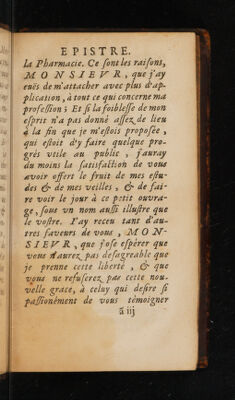 EPISTRE.
la Pharmacie. Ce sont les raisons,
MONSIEVR, que j'ay
euës de m'attacher avec plus d'ap-
plication, à tout ce qui concerne ma
profession; Et si la foiblesse de mon
esprit n'a pas donné assez de lieu
à la fin que je m'estois proposée,
qui estoit d'y faire quelque pro-
grés vtile au public, j'auray
du moins la satisfaction de vous
avoir offert le fruit de mes estu-
des & de mes veilles, & de fai-
re voir le jour à ce petit ouvra-
ge, sous vn nom aussi illustre que
le vostre. J'ay receu tant d'au-
tres faveurs de vous, MON-
SIEVR, que j'ose espérer que
vous n'aurez pas desagreable que
je prenne cette liberté, & que
vous ne refuserez pas cette nou-
velle grace, à celuy qui desire si
passionément de vous témoigner
ã iij